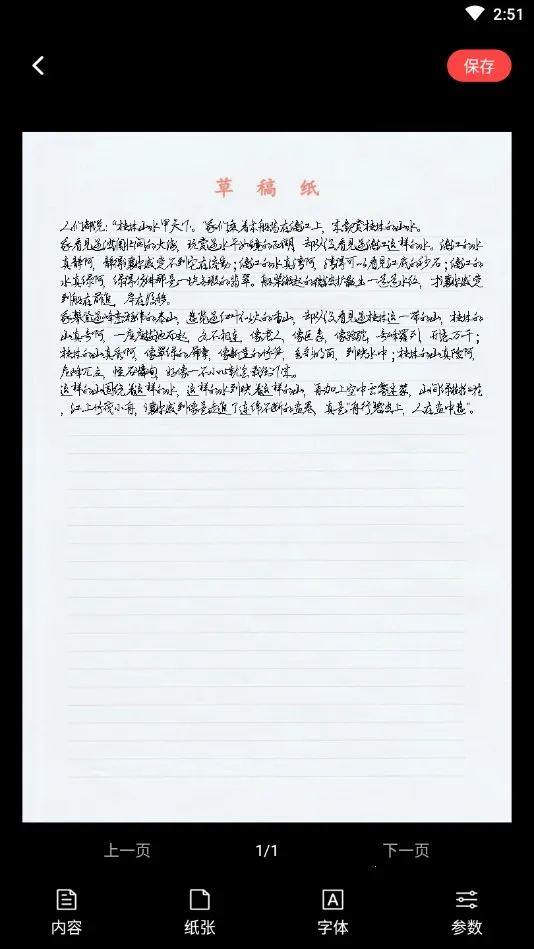 2:51
保存
草 稿 纸
人们都说："桂林山水甲天下。"我们乘着木船荡在漓江上，来观赏桂林的山水。
我看见过波澜壮阔的大海，玩赏过水平如镜的西湖，却从没看见过漓江这样的水。漓江的水
真静啊，静得让你感觉不到它在流动；漓江的水真清啊，清得可以看见江底的沙石；漓江的
水真绿啊，绿得仿佛那是一块无瑕的翡翠。船桨激起的微波扩散出一道道水纹，才让你感觉
到船在前进，岸在后移。
我攀登过峰峦雄伟的泰山，游览过红叶似火的香山，却从没看见过桂林这一带的山，桂林的
山真奇啊，一座座拔地而起，各不相连，像老人，像巨象，像骆驼，奇峰罗列，形态万千；
桂林的山真秀啊，像翠绿的屏障，像新生的竹笋，色彩明丽，倒映水中；桂林的山真险啊，
危峰兀立，怪石嶙峋，好像一不小心就会栽倒下来。
这样的山围绕着这样的水，这样的水倒映着这样的山，再加上空中云雾迷蒙，山间绿树红花
，江上竹筏小舟，让你感到像是走进了连绵不断的画卷，真是"舟行碧波上，人在画中游"。
上一页 1/1 下一页
内容 纸张 字体 参数